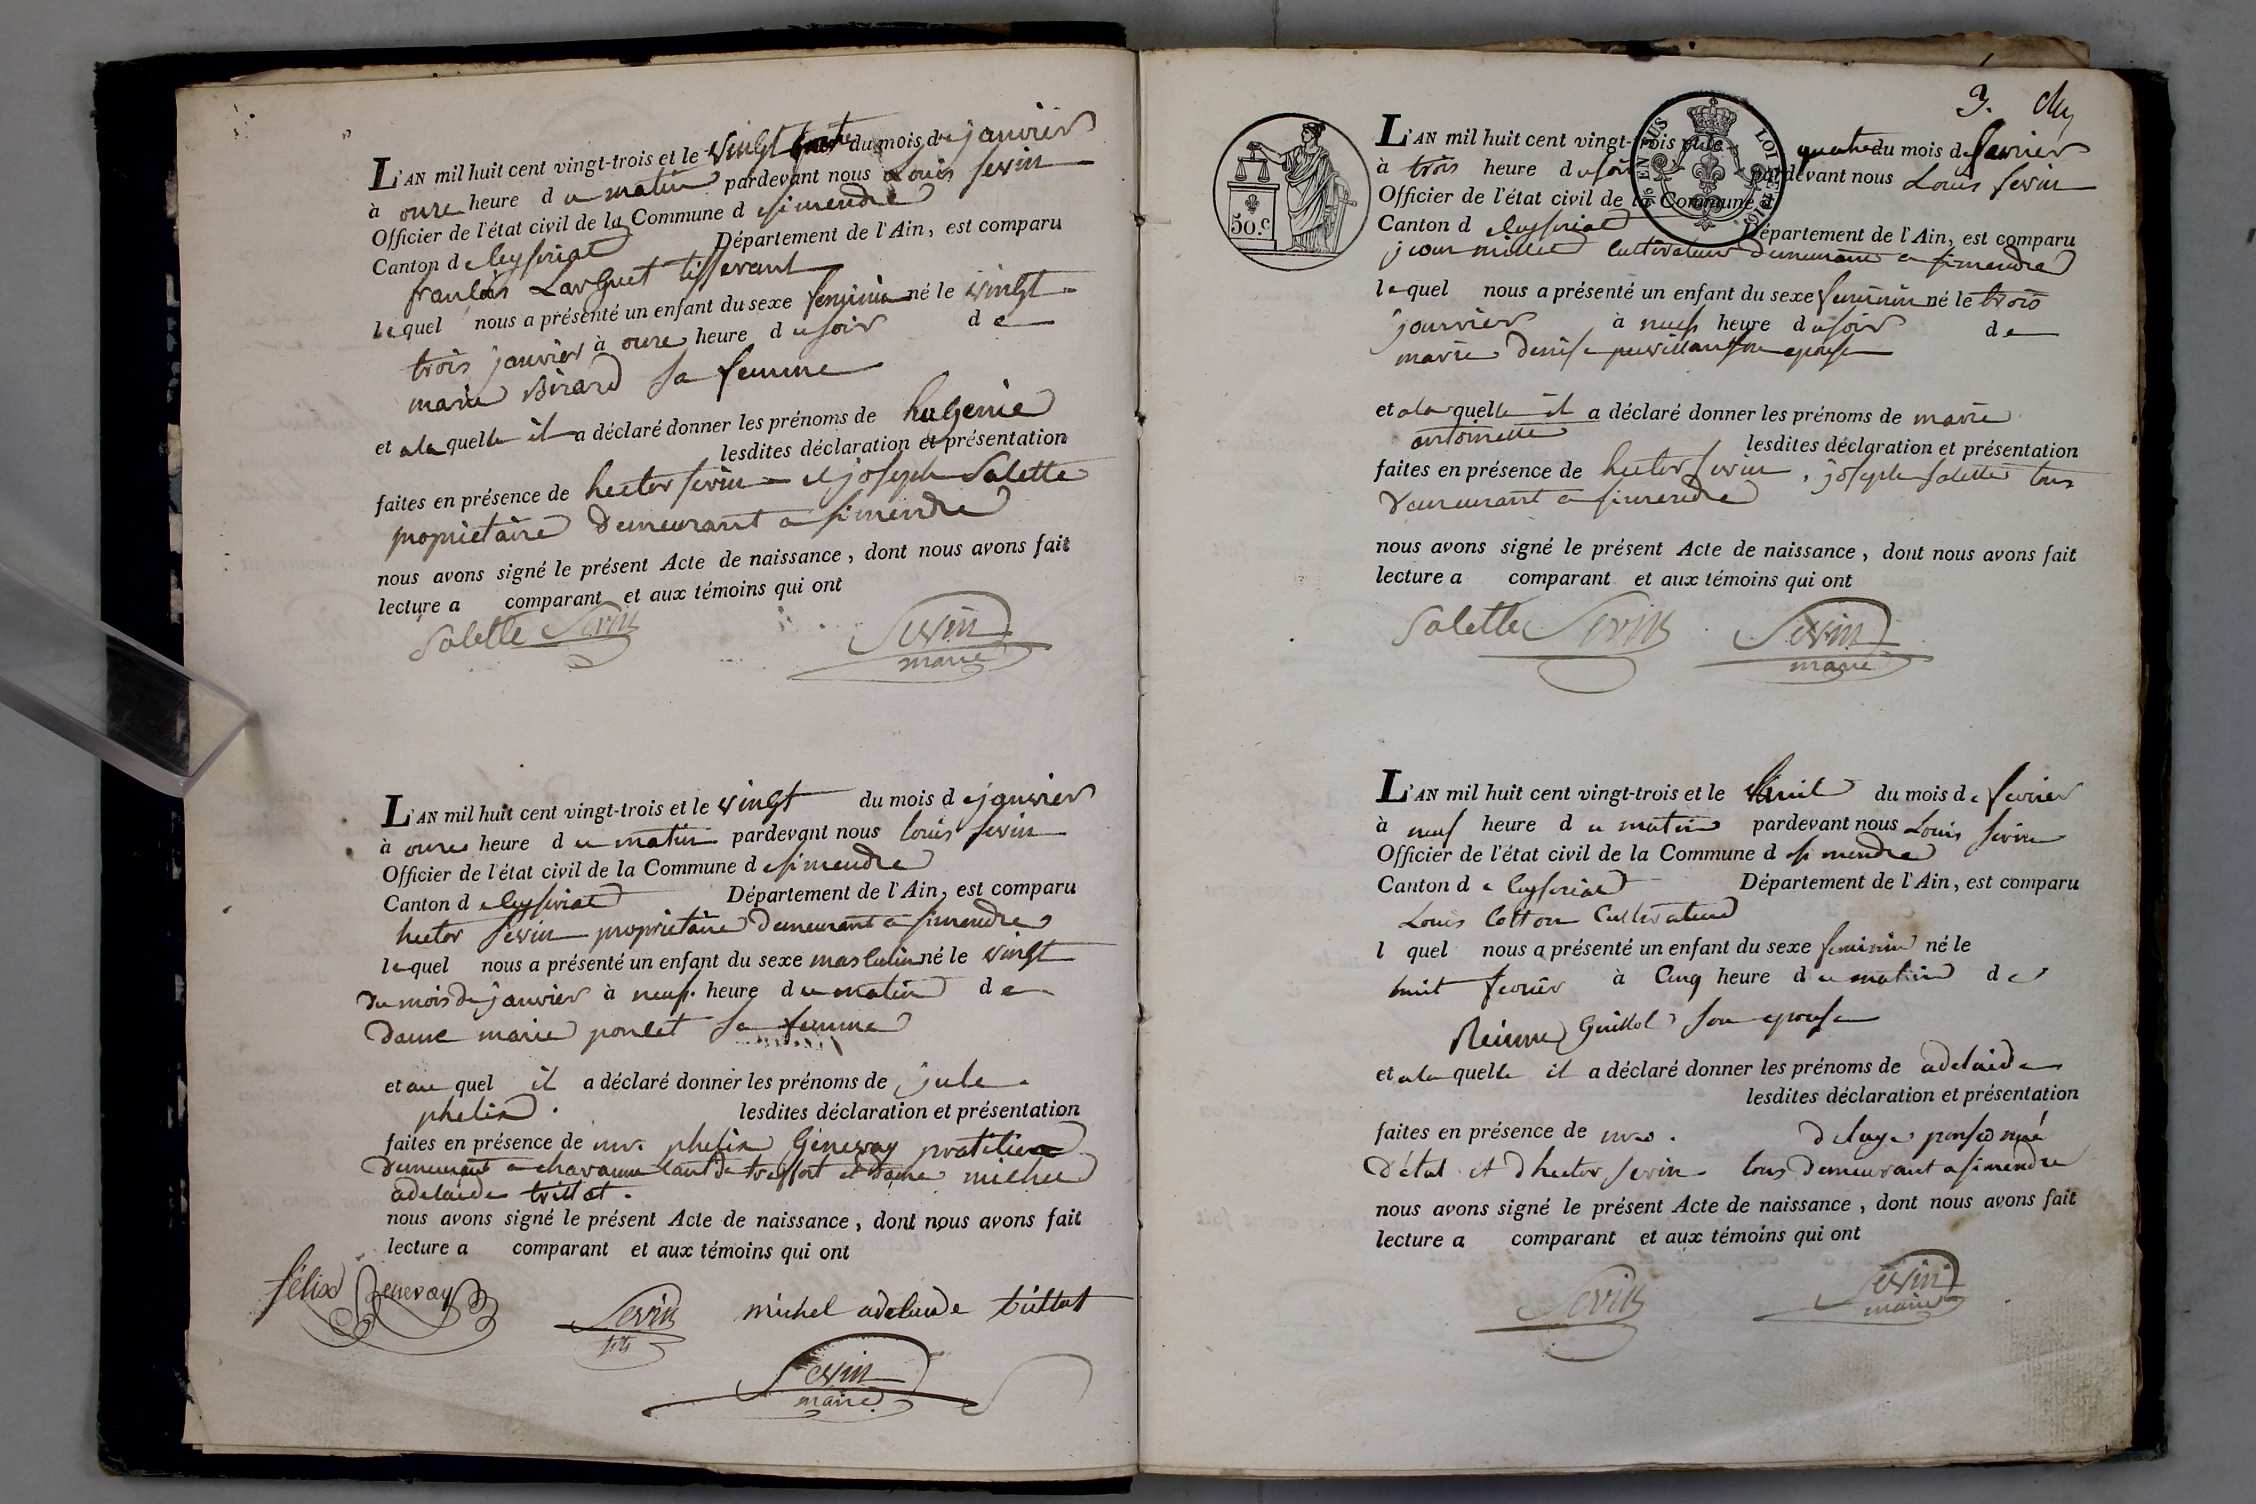 L'AN mil huit cent vingt-trois et le vingt du mois de janvier
à onze heure du matin pardevant nous Louis sevin
Officier de l'état civil de la Commune de simendre
Canton de Ceyseriat Département de l'Ain, est comparu
francois Larguet tisserant
lequel nous a présenté un enfant du sexe feminin né le vingt
trois janvier à onze heure du soir de
marie Birard sa femme
et a la quelle il a déclaré donner les prénoms de hugenie
lesdites déclaration et présentation
faites en présence de hector sevin et joseph Salette
proprietaire demeurant a simendre
nous avons signé le présent Acte de naissance, dont nous avons fait
lecture a comparant et aux témoins qui ont
Salette Sevin Sevin
maire
L'AN mil huit cent vingt-trois et le vingt du mois de janvier
à onze heure du matin pardevant nous louis sevin
Officier de l'état civil de la Commune de simendre
Canton de Ceyseriat Département de l'Ain, est comparu
hector sevin proprietaire demeurant a simendre
lequel nous a présenté un enfant du sexe masculin né le vingt
du mois de janvier à neuf heure du matin de
dame marie poncet sa femme
et au quel il a déclaré donner les prénoms de jule
phelix. lesdites déclaration et présentation
faites en présence de mr. phelix Genevay praticien
demeurant a chavanne cant de treffort et dame michel
adelaide trillat.
nous avons signé le présent Acte de naissance, dont nous avons fait
lecture a comparant et aux témoins qui ont
félix Genevay Sevin michel adelaide trillat
fils
Sevin
maire
3.
L'AN mil huit cent vingt-trois et le quatre du mois de fevrier
à trois heure du soir pardevant nous Louis sevin
Officier de l'état civil de la Commune d
Canton de Ceyseriat Département de l'Ain, est comparu
millet cultivateur demeurant a simendre
lequel nous a présenté un enfant du sexe feminin né le trois
janvier à neuf heure du soir de
marie denise son epouse
et a la quelle il a déclaré donner les prénoms de marie
antoinette lesdites déclaration et présentation
faites en présence de hector sevin, joseph salette tous
demeurant a simendre
nous avons signé le présent Acte de naissance, dont nous avons fait
lecture a comparant et aux témoins qui ont
Salette Sevin Sevin
maire
50.c
EN SUS
LOI DE 1816.
L'AN mil huit cent vingt-trois et le huit du mois de fevrier
à neuf heure du matin pardevant nous Louis sevin
Officier de l'état civil de la Commune d simendre
Canton de Ceyseriat Département de l'Ain, est comparu
Louis Cotton Cultivateur
l quel nous a présenté un enfant du sexe feminin né le
huit fevrier à Cinq heure du matin de
Reinne Guillot son epouse
et a la quelle il a déclaré donner les prénoms de adelaide
lesdites déclaration et présentation
faites en présence de delaye
d'état et d'hector sevin tous demeurant a simendre
nous avons signé le présent Acte de naissance, dont nous avons fait
lecture a comparant et aux témoins qui ont
Sevin Sevin
maire